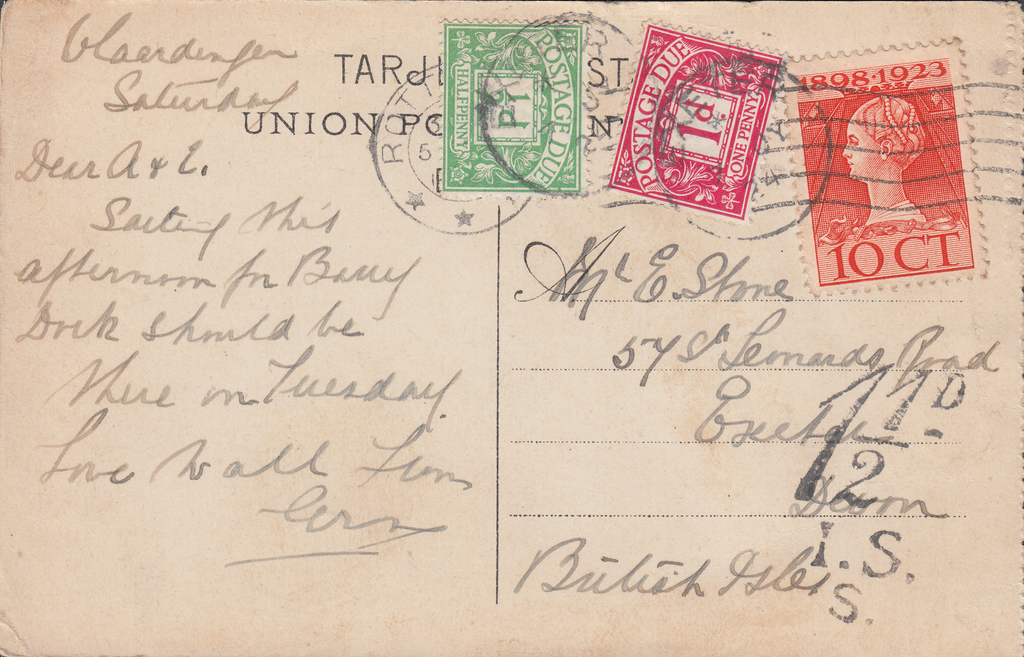 Vlaardingen
Saturday
Dear A & E.
Sailing this
afternoon for Barry
Dock should be
there on Tuesday
Love to all from
TARJ ST
UNION PO N
ROTT
5
POSTAGE DUE
½d
HALFPENNY
POSTAGE DUE
1d
ONE PENNY
1898·1923
10 CT
Mr E. Stone
57 St Leonards Road
Exeter
Devon
British Isles
1½D
I.S.
S.